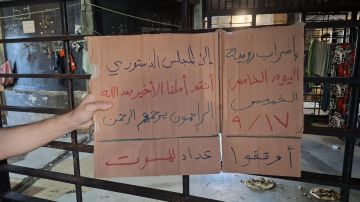 إضراب رومية
اليوم الخامس
الخميس
٩/١٧
إلى المجلس الدستوري
أنتم أملنا الأخير بعد الله
الراحمون يرحمهم الرحمن
أوقفوا عداد الموت